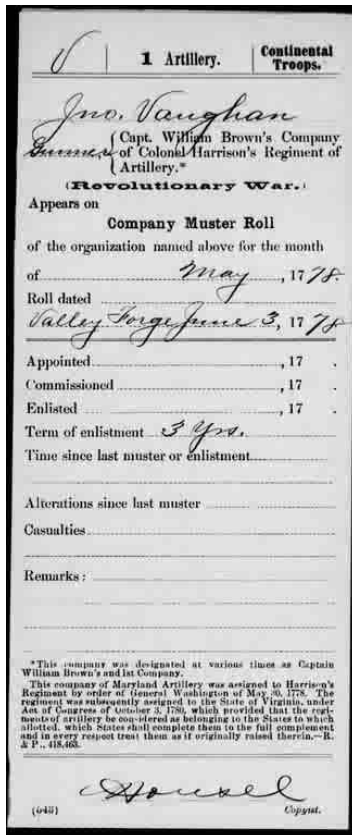 V | 1 Artillery. | Continental Troops.
Jno. Vaughan
Gunner { Capt. William Brown's Company
of Colonel Harrison's Regiment of
Artillery.*
(Revolutionary War.)
Appears on
Company Muster Roll
of the organization named above for the month
of May, 1778.
Roll dated
Valley Forge June 3, 1778
Appointed , 17 .
Commissioned , 17 .
Enlisted , 17 .
Term of enlistment 3 Yrs.
Time since last muster or enlistment
Alterations since last muster
Casualties
Remarks:
*This company was designated at various times as Captain
William Brown's and 1st Company.
This company of Maryland Artillery was assigned to Harrison's
Regiment by order of General Washington of May 30, 1778. The
regiment was subsequently assigned to the State of Virginia, under
Act of Congress of October 3, 1780, which provided that the regi-
ments of artillery be considered as belonging to the States to which
allotted, which States shall complete them to the full complement
and in every respect treat them as if originally raised therein.—R.
& P., 418,463.
Housel
(543) Copyist.